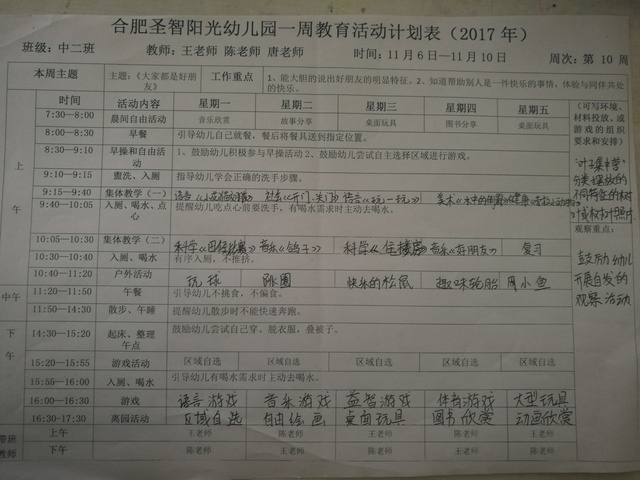 合肥圣智阳光幼儿园一周教育活动计划表（2017 年）
班级：中二班 教师：王老师 陈老师 唐老师 时间：11 月 6 日—11 月 10 日 周次：第 10 周
本周主题 主题：《大家都是好朋友》 工作重点 1、能大胆的说出好朋友的明显特征。2、知道帮助别人是一件快乐的事情，体验与同伴共处的快乐。
时间 活动内容 星期一 星期二 星期三 星期四 星期五 （可写环境、材料投放、或游戏的组织要求和安排）
上午
7:30—8:00 晨间自由活动 音乐欣赏 故事分享 桌面玩具 图书分享 桌面玩具
8:00—8:30 早餐 引导幼儿自己就餐，餐后将餐具送到指定位置。
8:30—9:10 早操和自由活动 1、鼓励幼儿积极参与早操活动 2、鼓励幼儿尝试自主选择区域进行游戏。
9:10—9:15 盥洗、入厕 指导幼儿学会正确的洗手步骤。
9:15—9:40 集体教学（一） 语言 社会《开门、关门》 语言 美术 健康
9:40—10:05 入厕、喝水、点心 提醒幼儿吃点心前要洗手，有喝水需求时主动去喝水。
10:05—10:30 集体教学（二） 科学 音乐《鸽子》 科学 音乐《好朋友》 复习
10:30—10:40 入厕、喝水 有序入厕，不推挤。
10:40—11:20 户外活动 玩球 跳圈 快乐的松鼠 趣味轮胎 周小鱼
中午
11:20—11:50 午餐 引导幼儿不挑食，不偏食。
11:50—14:30 散步、午睡 提醒幼儿散步时不能快速奔跑。
下午
14:30—15:20 起床、整理午点 鼓励幼儿尝试自己穿、脱衣服，叠被子。
15:20—15:55 游戏活动 区域自选 区域自选 区域自选 区域自选 区域自选
15:55—16:00 入厕、喝水 引导幼儿有喝水需求时主动去喝水。
16:00—16:30 游戏 语言游戏 音乐游戏 益智游戏 体育游戏 大型玩具
16:30-17:30 离园活动 区域自选 自由绘画 桌面玩具 图书欣赏 动画欣赏
带班教师
上午 王老师 陈老师 王老师 陈老师 王老师
下午 陈老师 王老师 陈老师 王老师 陈老师
分类摆放的
不同特征的树
观察重点：
鼓励幼儿
开展自发的
观察活动